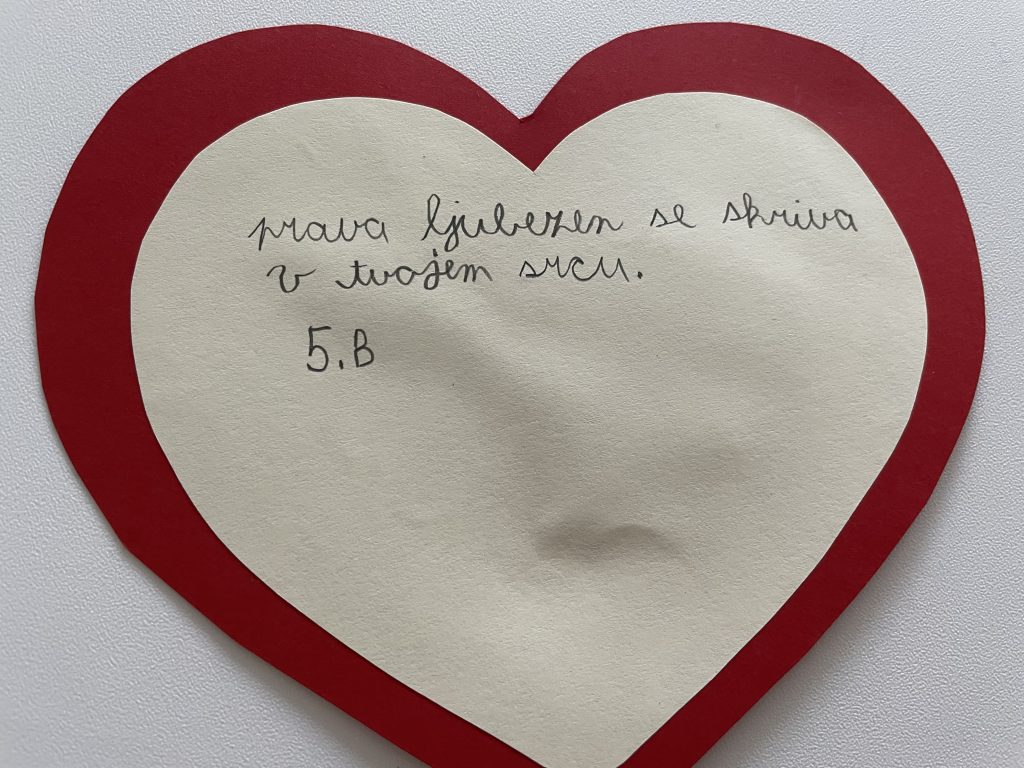 prava ljubezen se skriva
v tvojem srcu.
5.B